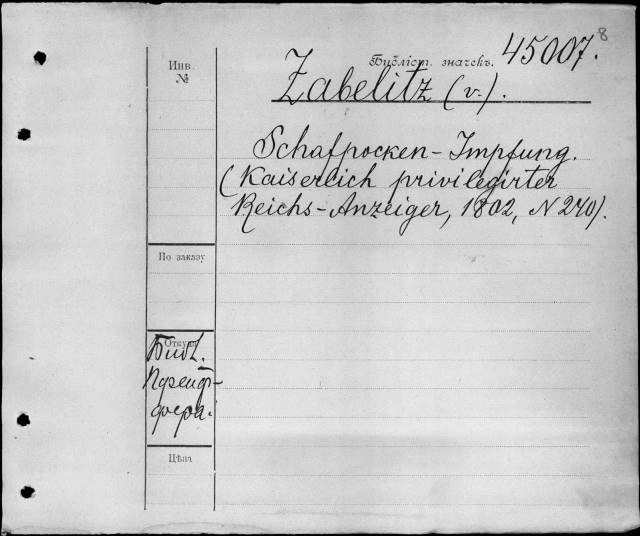 8
Инв.
№
Библіот. значекъ. 45007.
Zabelitz (v.).
Schafpocken-Impfung.
(Kaiserlich privilegirter
Reichs-Anzeiger, 1802, N 270).
По заказу
Откуда
Библ.
Пфейф-
фера.
Цѣна